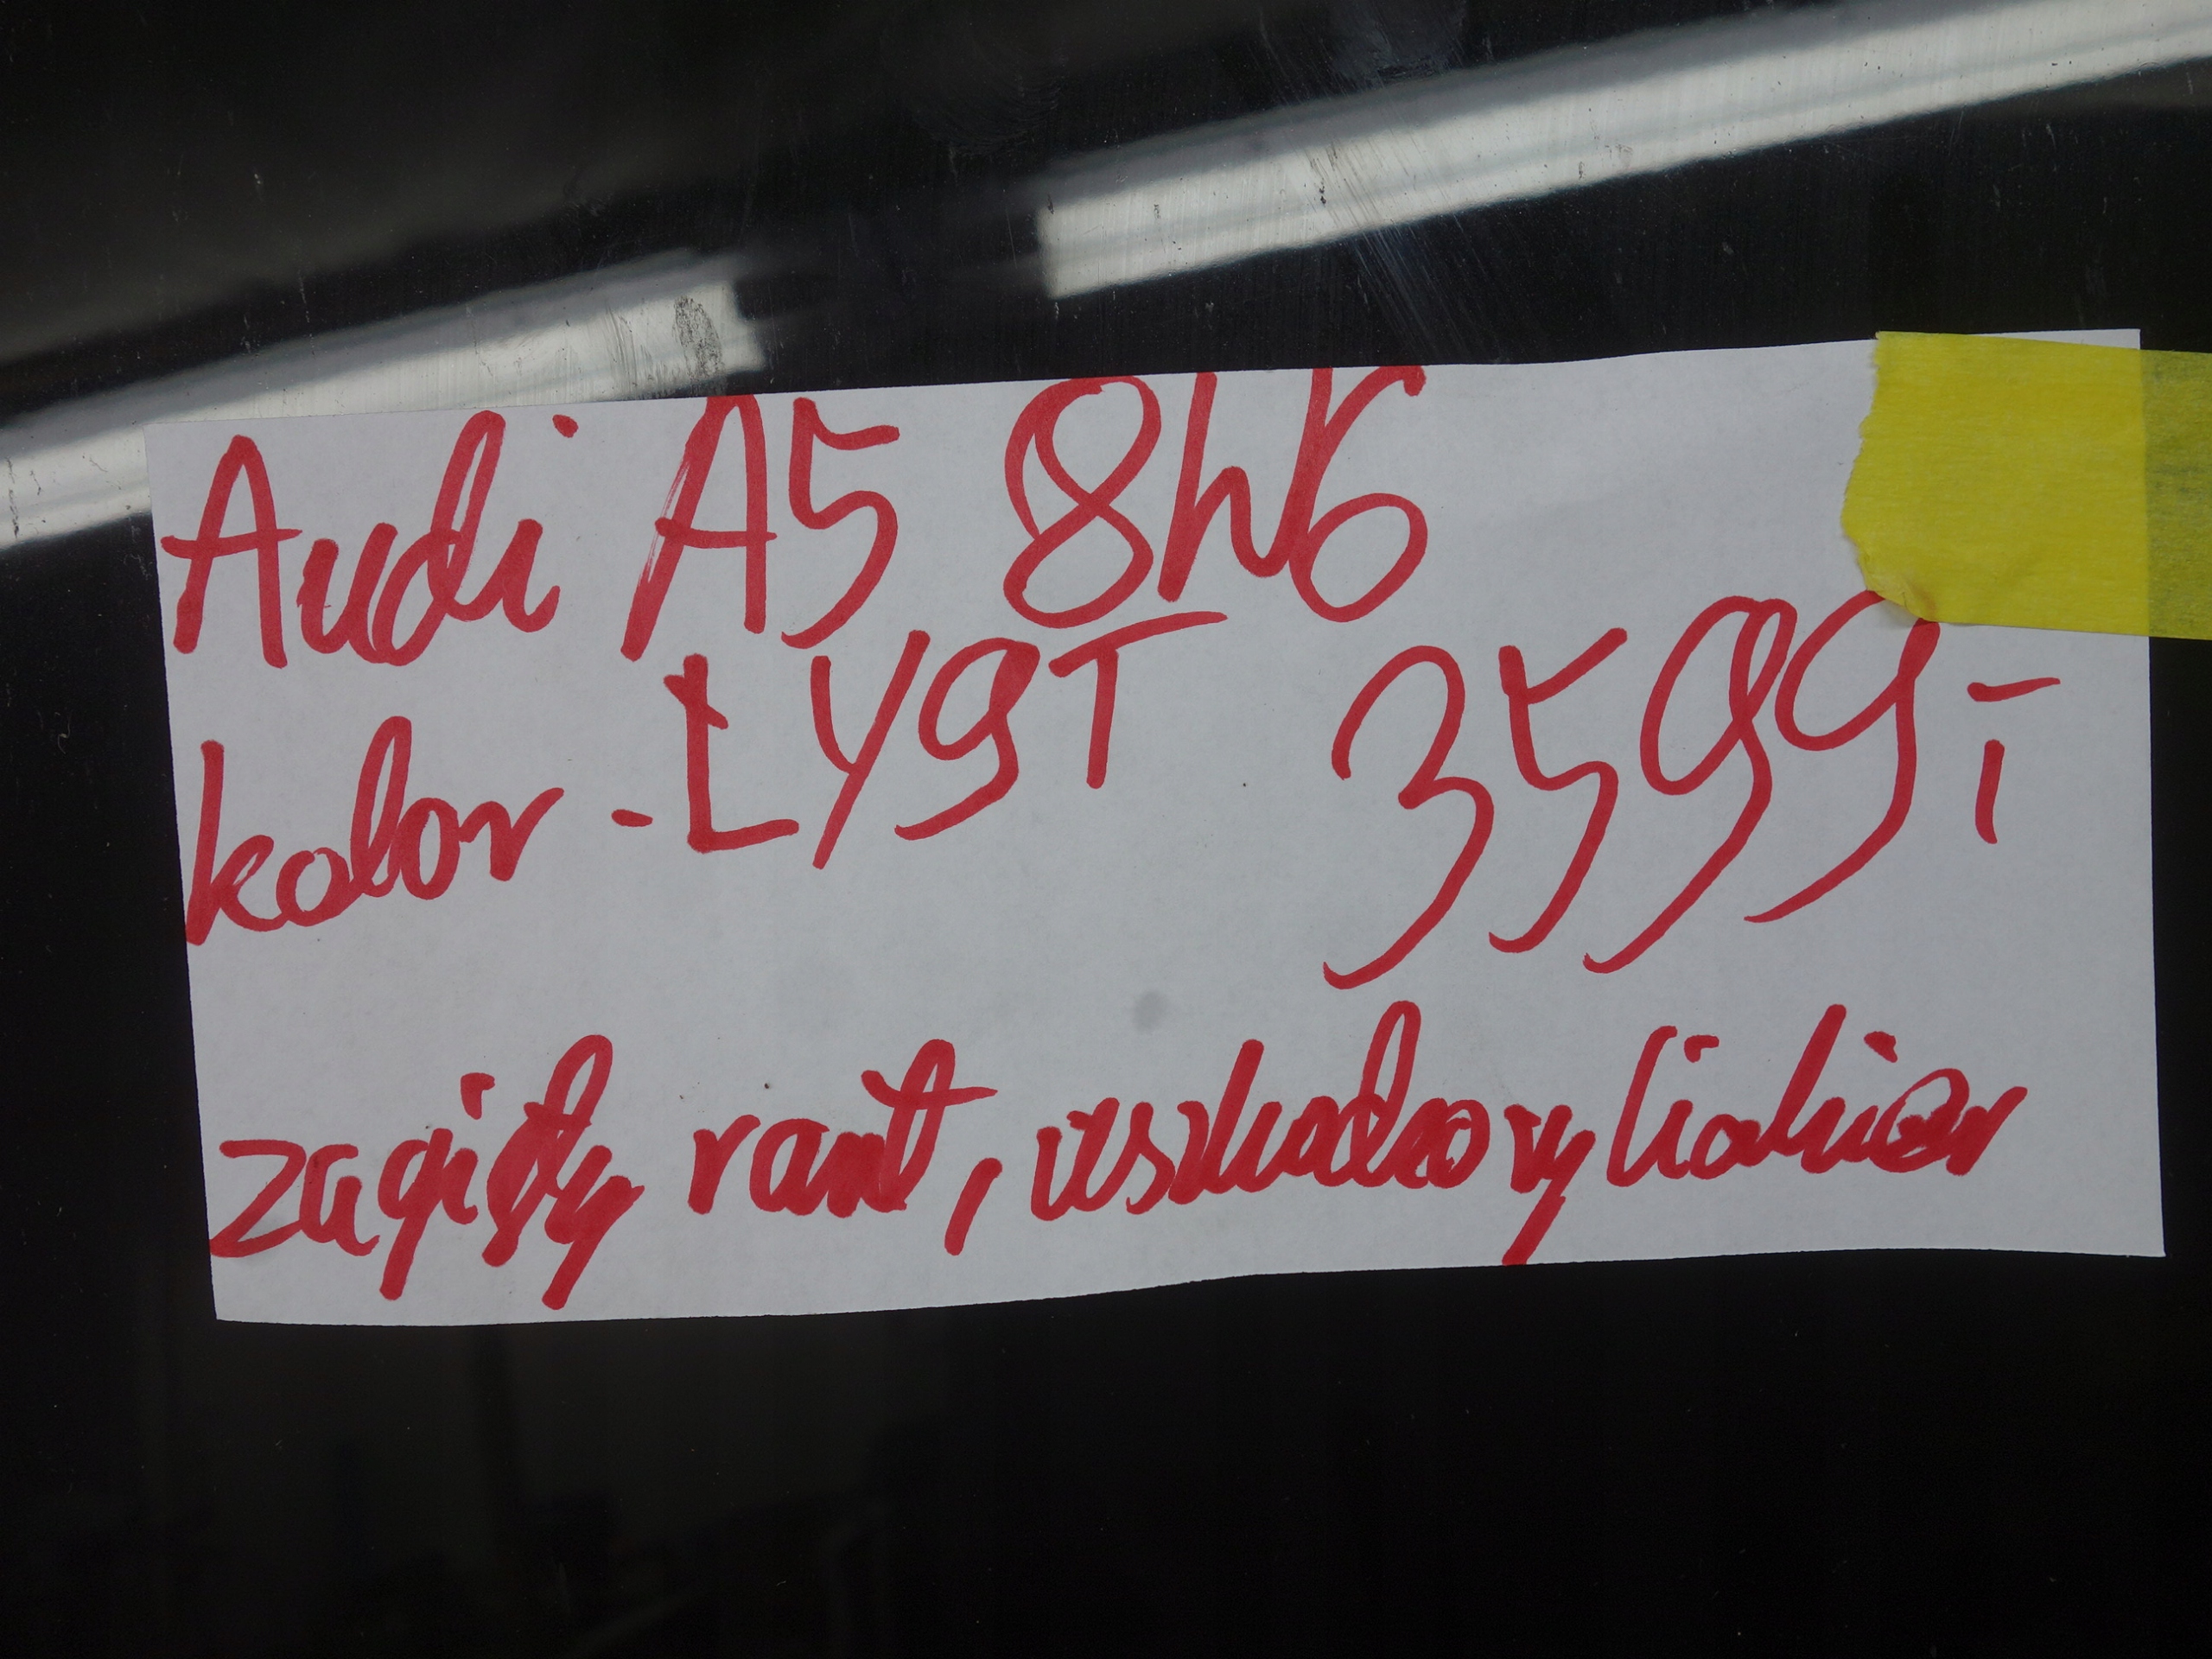 Audi A5 8W6
kolor - LY9T 3599,-
zagięty rant, uszkodzony lakier